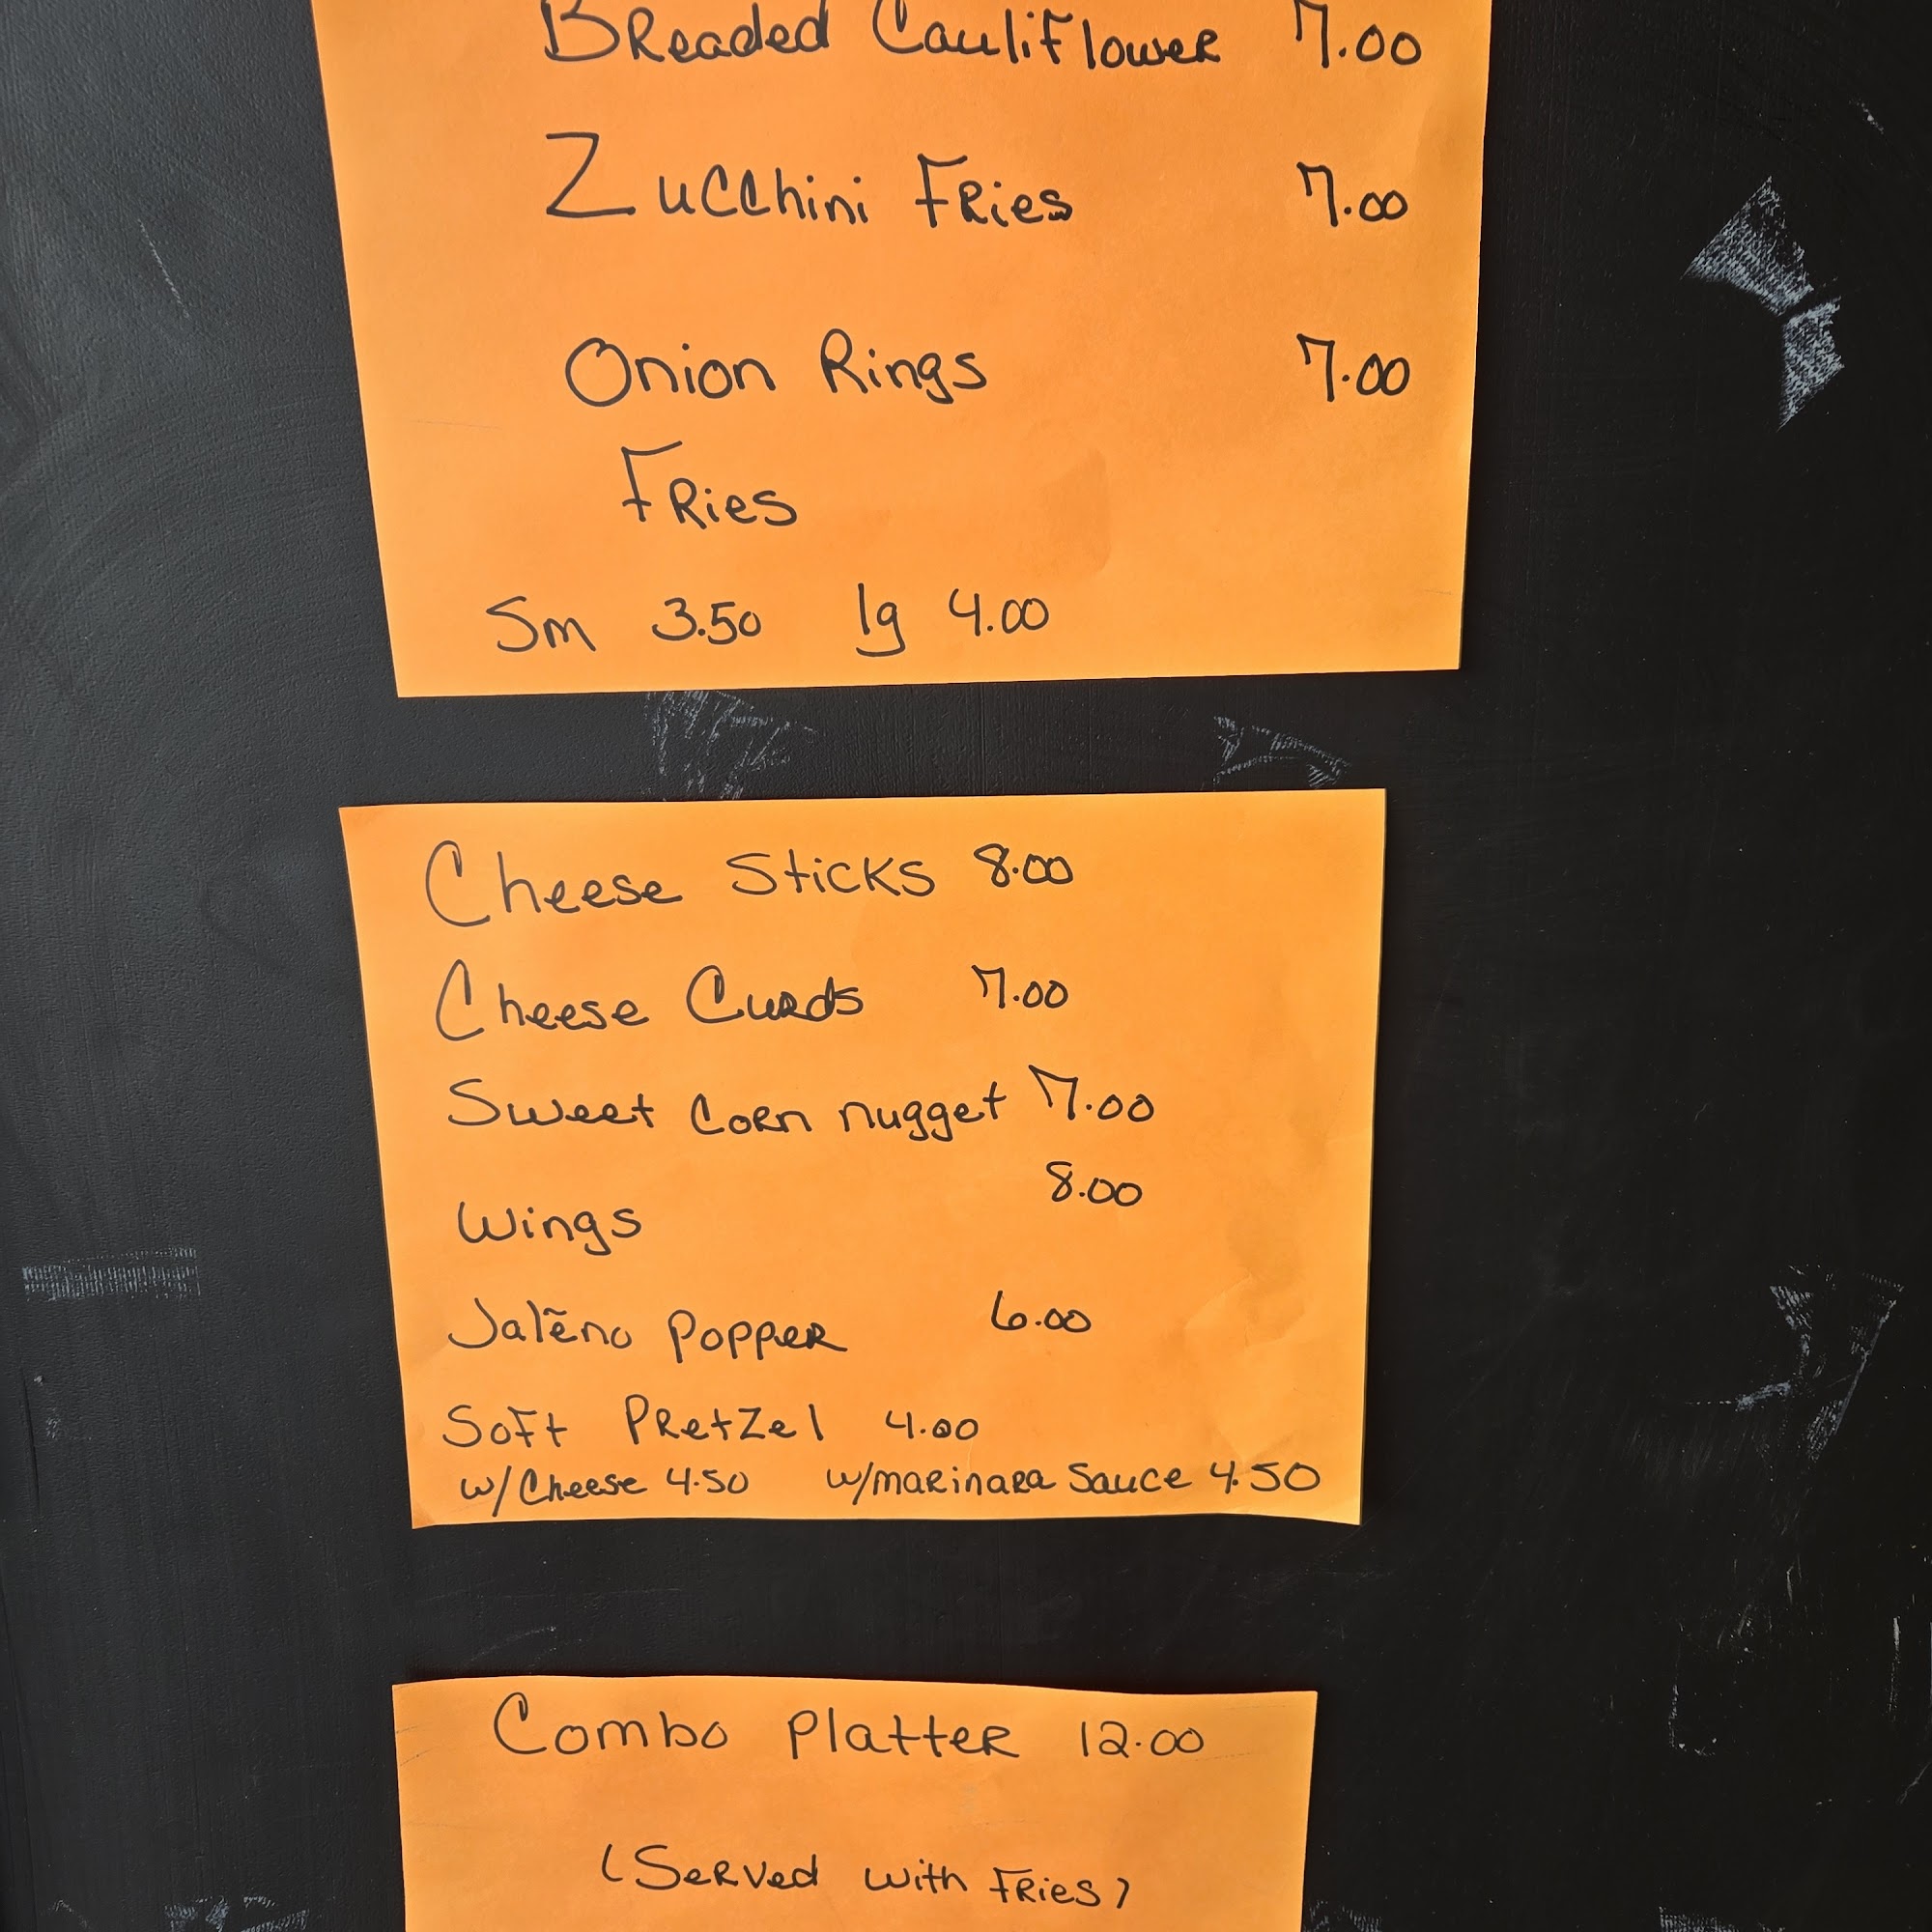 Breaded Cauliflower 7.00
Zucchini Fries 7.00
Onion Rings 7.00
Fries
Sm 3.50 lg 4.00
Cheese Sticks 8.00
Cheese Curds 7.00
Sweet Corn nugget 7.00
Wings 8.00
Jalẽno Popper 6.00
Soft Pretzel 4.00
w/Cheese 4.50 w/marinara Sauce 4.50
Combo Platter 12.00
(Served with Fries)